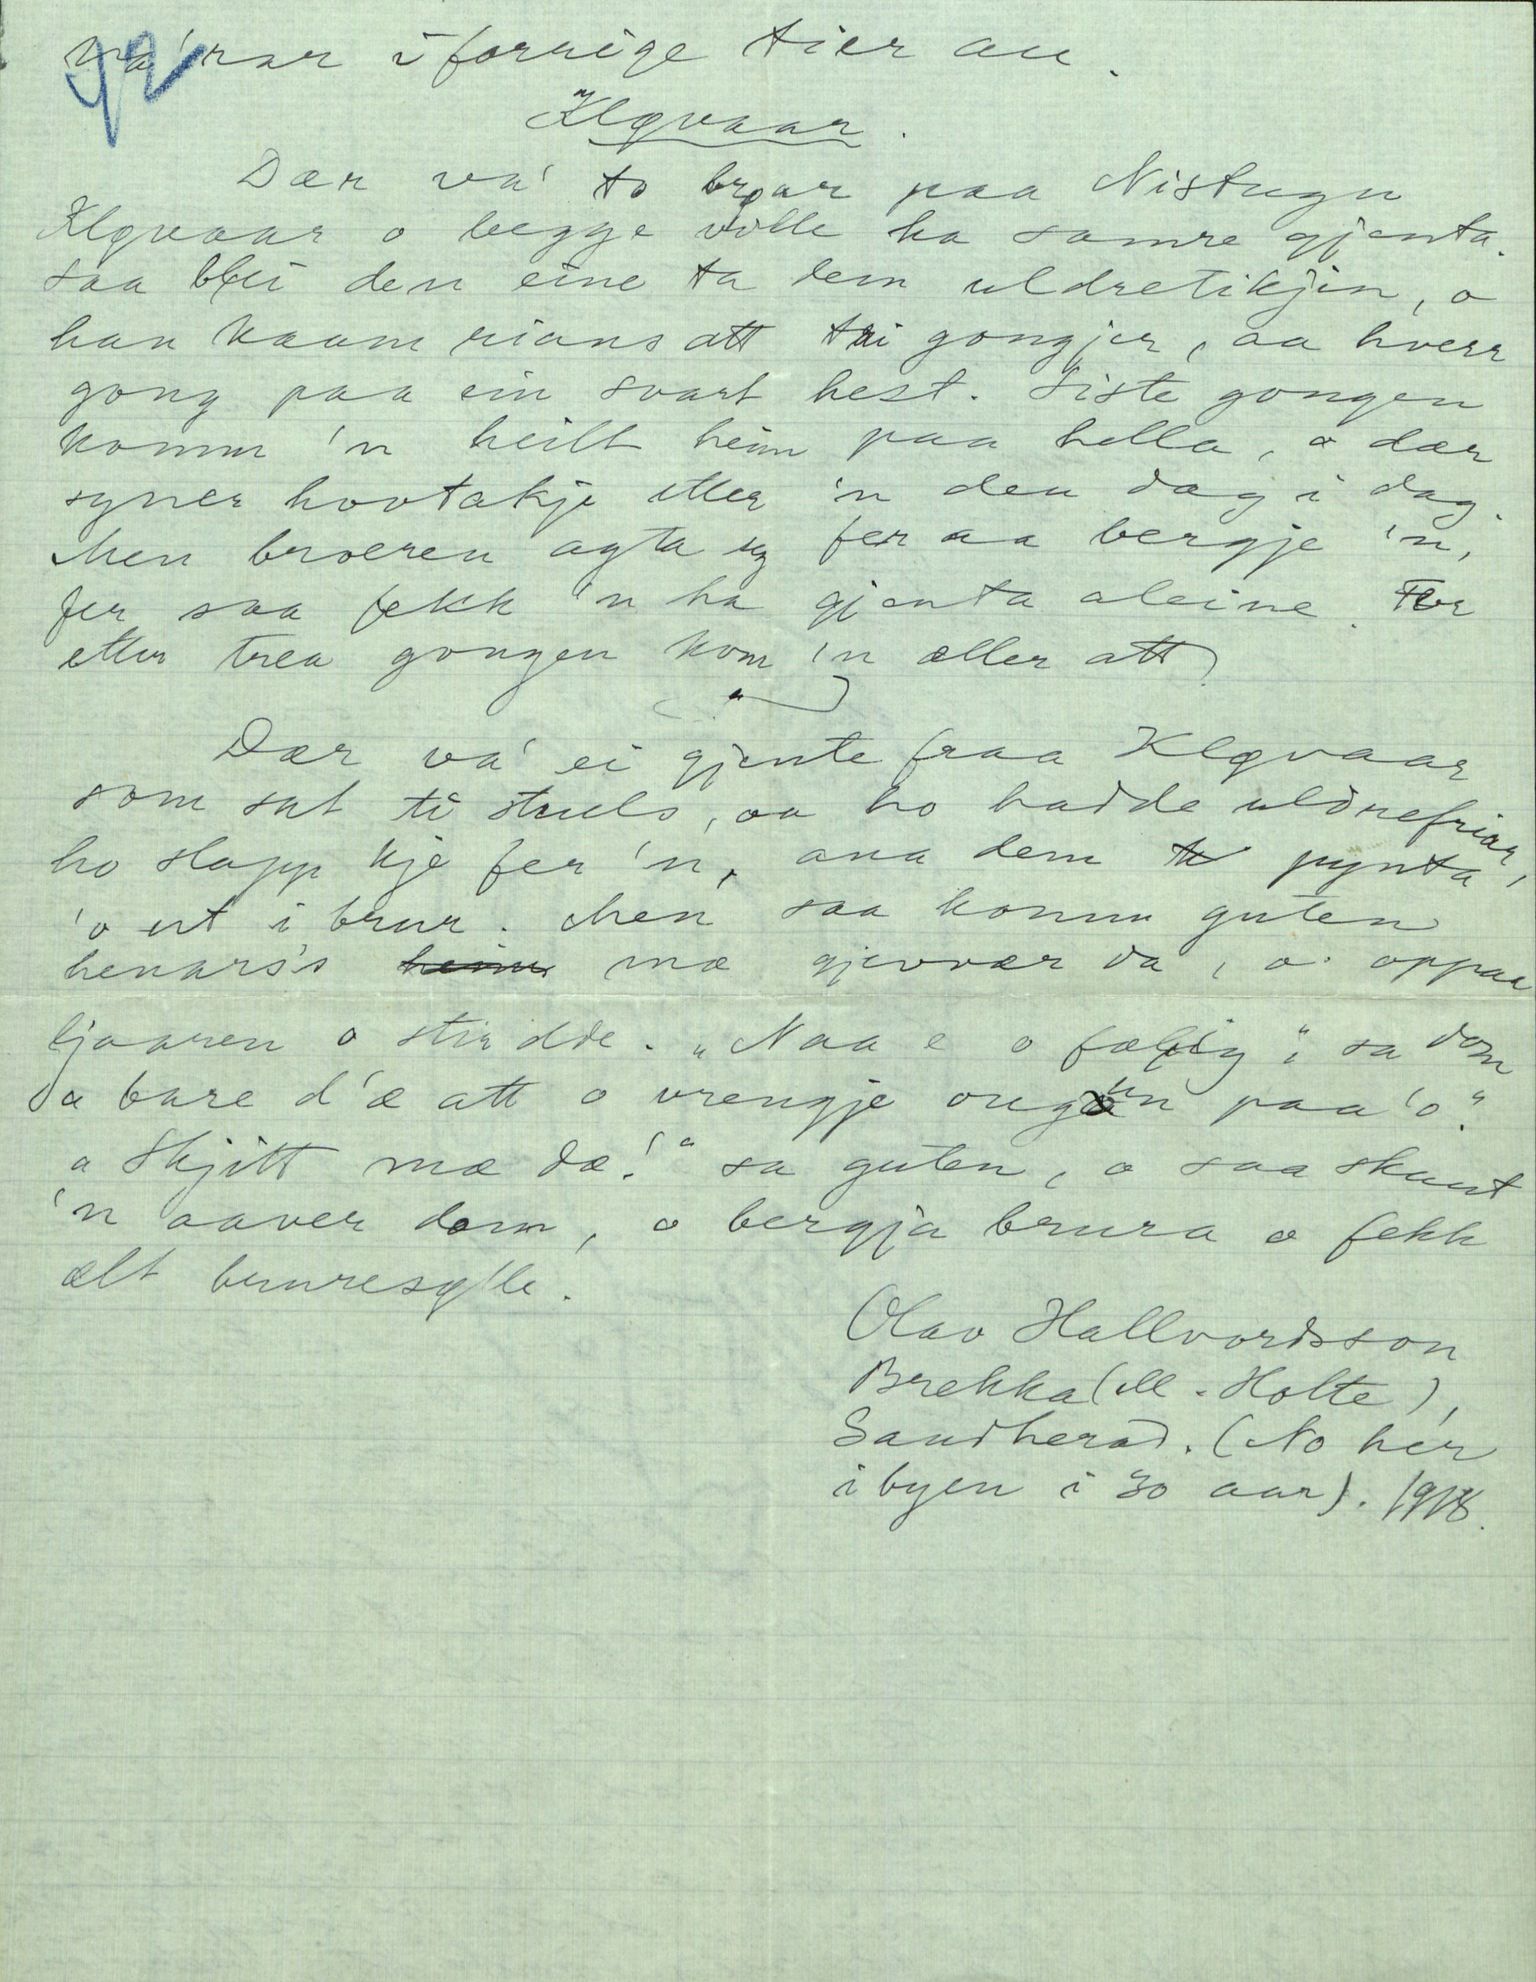 92
va' rar i forrige tier au.
Kløvaar.
Dær va' to brøar paa Nistugu
Kløvaar o begge ville ha samre gjenta.
saa blei den eine ta dem uldretikjin, o
han kaam rians att tri gongjer, aa hverr
gong paa ein svart hest. Siste gongen
komm 'n heilt heim paa hella, o dær
syner hovtakje etter 'n den dag i dag.
Men broeren agta seg fer aa bergje 'n,
fer saa fekk 'n ha gjenta aleine. For
etter trea gongen kom 'n æller att.
Dær va' ei gjente fraa Kløvaar
som sat ti støuls, aa ho hadde uldrefriar,
ho slapp kje fer 'n, ana dem pynta
'o ut i brur. Men saa komm guten
henars's heim mæ gjevær da, o oppaa
ljaaren o stirdde. „Naa e o fælig", sa dom
„bare d'æ att o vrengje ougun paa 'o."
„Skjitt mæ dæ!" sa guten, o saa skaut
'n aaver dom, o bergja brura o fekk
ælt bruresølle.
Olav Hallvordsson
Brekka (M. Holte),
Sandherad. (No her
i byen i 30 aar). 1918.